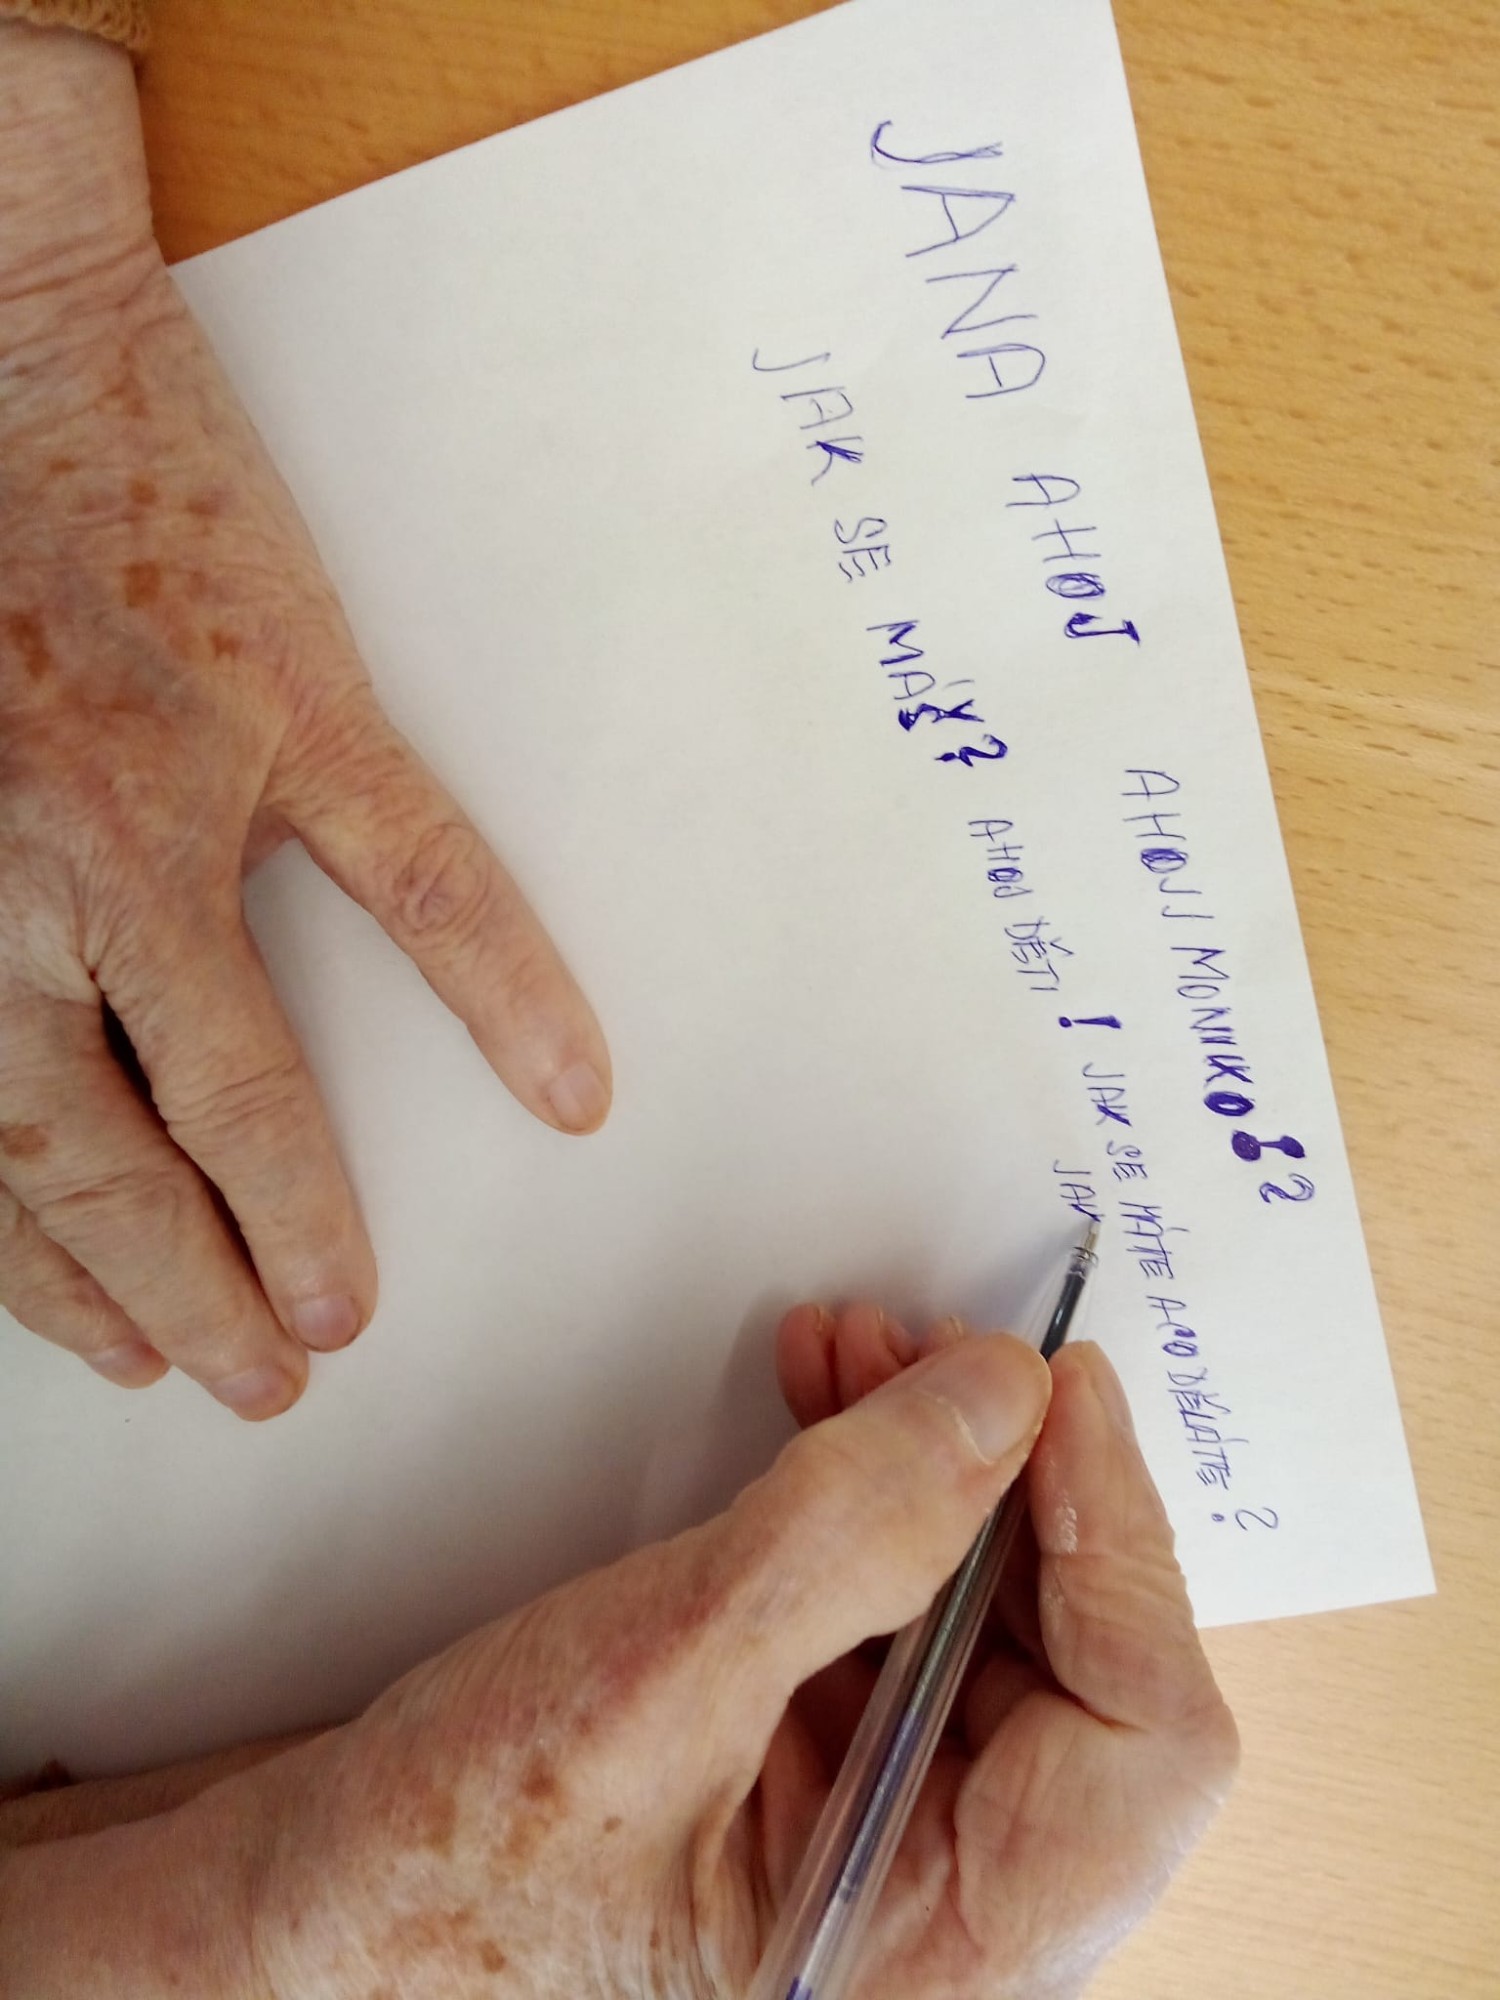 JANA AHOJ AHOJJ MONIKO!?
JAK SE MÁŠ? AHOJ DĚTI! JAK SE MÁTE A CO DĚLÁTE?
JAK